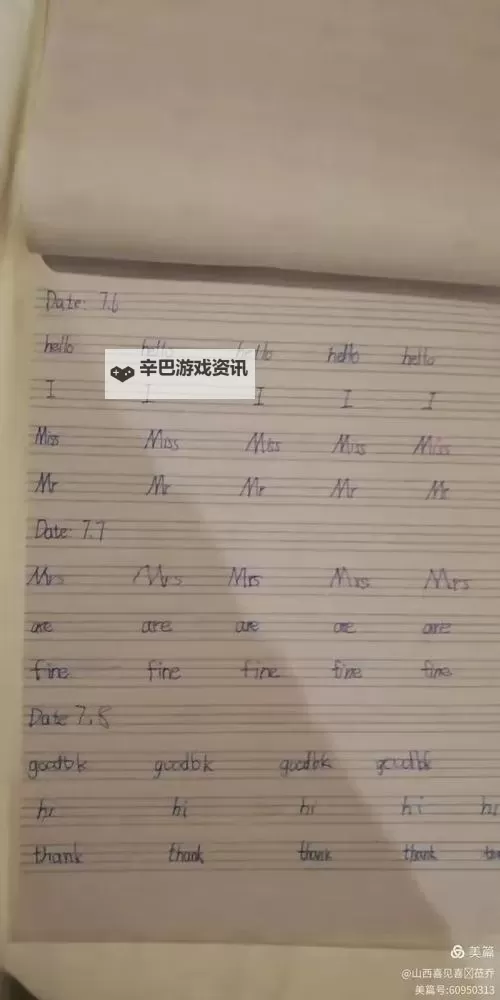 Date: 7.6
hello hello hello hello hello
辛巴游戏资讯
I I I I I
Miss Miss Miss Miss Miss
Mr Mr Mr Mr Mr
Date: 7.7
Mrs Mrs Mrs Mrs Mrs
are are are are are
fine fine fine fine fine
Date 7.8
goodbk goodbk goodbk goodbk
hi hi hi hi hi
thank thank thank thank
美篇
@山西喜见喜 茝乔
美篇号:60950313